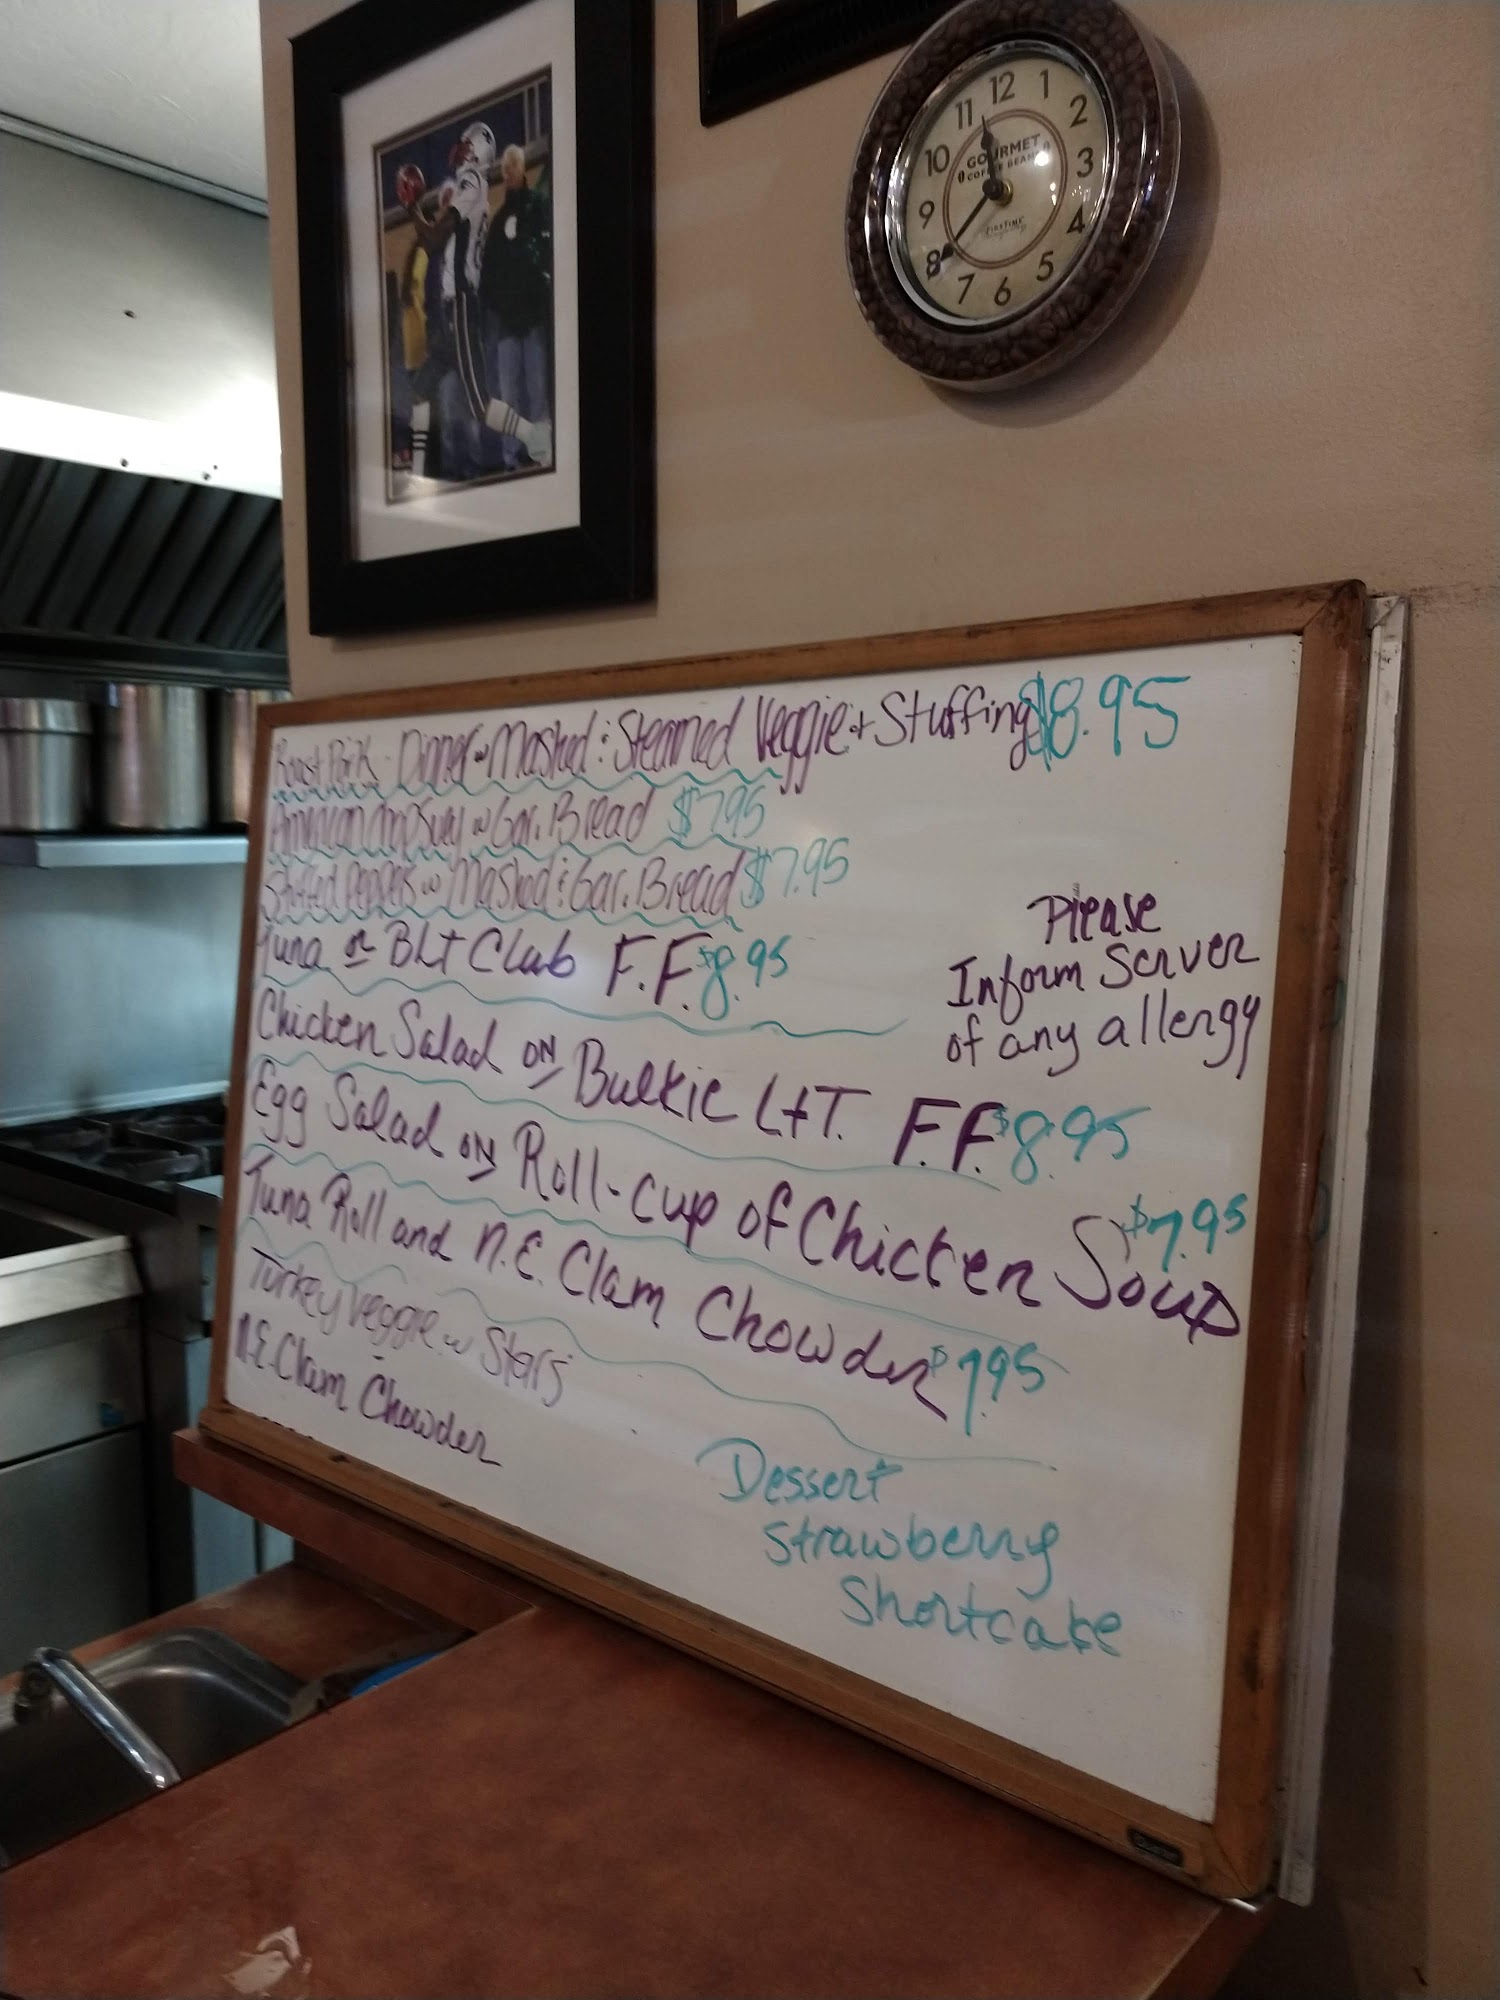 12
1
2
3
4
5
6
7
8
9
10
11
GOURMET
COFFEE BEANS
FIRSTIME
Roast Pork Dinner w Mashed & Steamed Veggie + Stuffing $8.95
American Chop Suey w Gar. Bread $7.95
Stuffed Peppers w Mashed & Gar. Bread $7.95
Tuna or BLT Club F.F. $8.95
Chicken Salad on Bulkie L+T. F.F. $8.95
Egg Salad on Roll-cup of Chicken Soup $7.95
Tuna Roll and N.E. Clam Chowder $7.95
Turkey Veggie w Stars
N.E. Clam Chowder
Please
Inform Server
of any allergy
Dessert
Strawberry
Shortcake